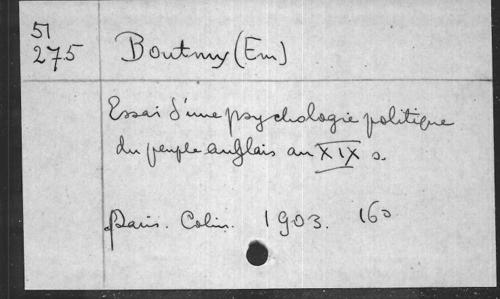 51
275
Boutmy (Em)
Essai d'une psychologie politique
du peuple anglais au XIX s.
Paris. Colin. 1903. 16º